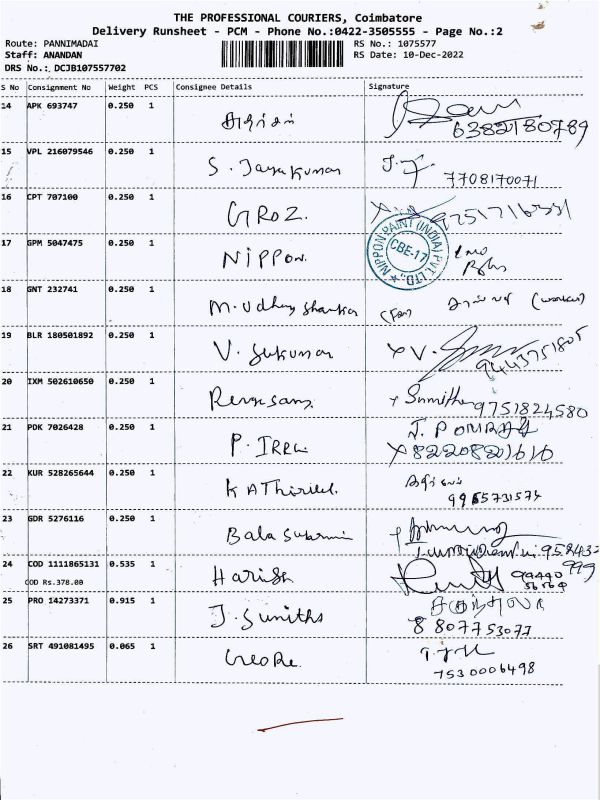 THE PROFESSIONAL COURIERS, Coimbatore
Delivery Runsheet - PCM - Phone No.:0422-3505555 - Page No.:2
Route: PANNIMADAI
RS No.: 1075577
Staff: ANANDAN
RS Date: 10-Dec-2022
DRS No.: DCJB107557702
S No Consignment No Weight PCS Consignee Details Signature
14 APK 693747 0.250 1
6382180789
15 VPL 216079546 0.250 1 S. Jayakumar
7708170071
16 CPT 707100 0.250 1 GROZ.
17 GPM 5047475 0.250 1 NIPPON.
NIPPON PAINT (INDIA) PVT. LTD.
CBE-17
18 GNT 232741 0.250 1 M. Udhay Shankar (For) (worker)
19 BLR 180501892 0.250 1 V. Sukumar
9443751805
20 IXM 502610650 0.250 1
9751824580
21 PDK 7026428 0.250 1 P. J. PONRAJ
8220821610
22 KUR 528265644 0.250 1 KAThirvel.
23 GDR 5276116 0.250 1 Bala
24 COD 1111865131 0.535 1 Harish
COD Rs.378.00
25 PRO 14273371 0.915 1 J. Sunitha
8807753077
26 SRT 491081495 0.065 1
7530006498